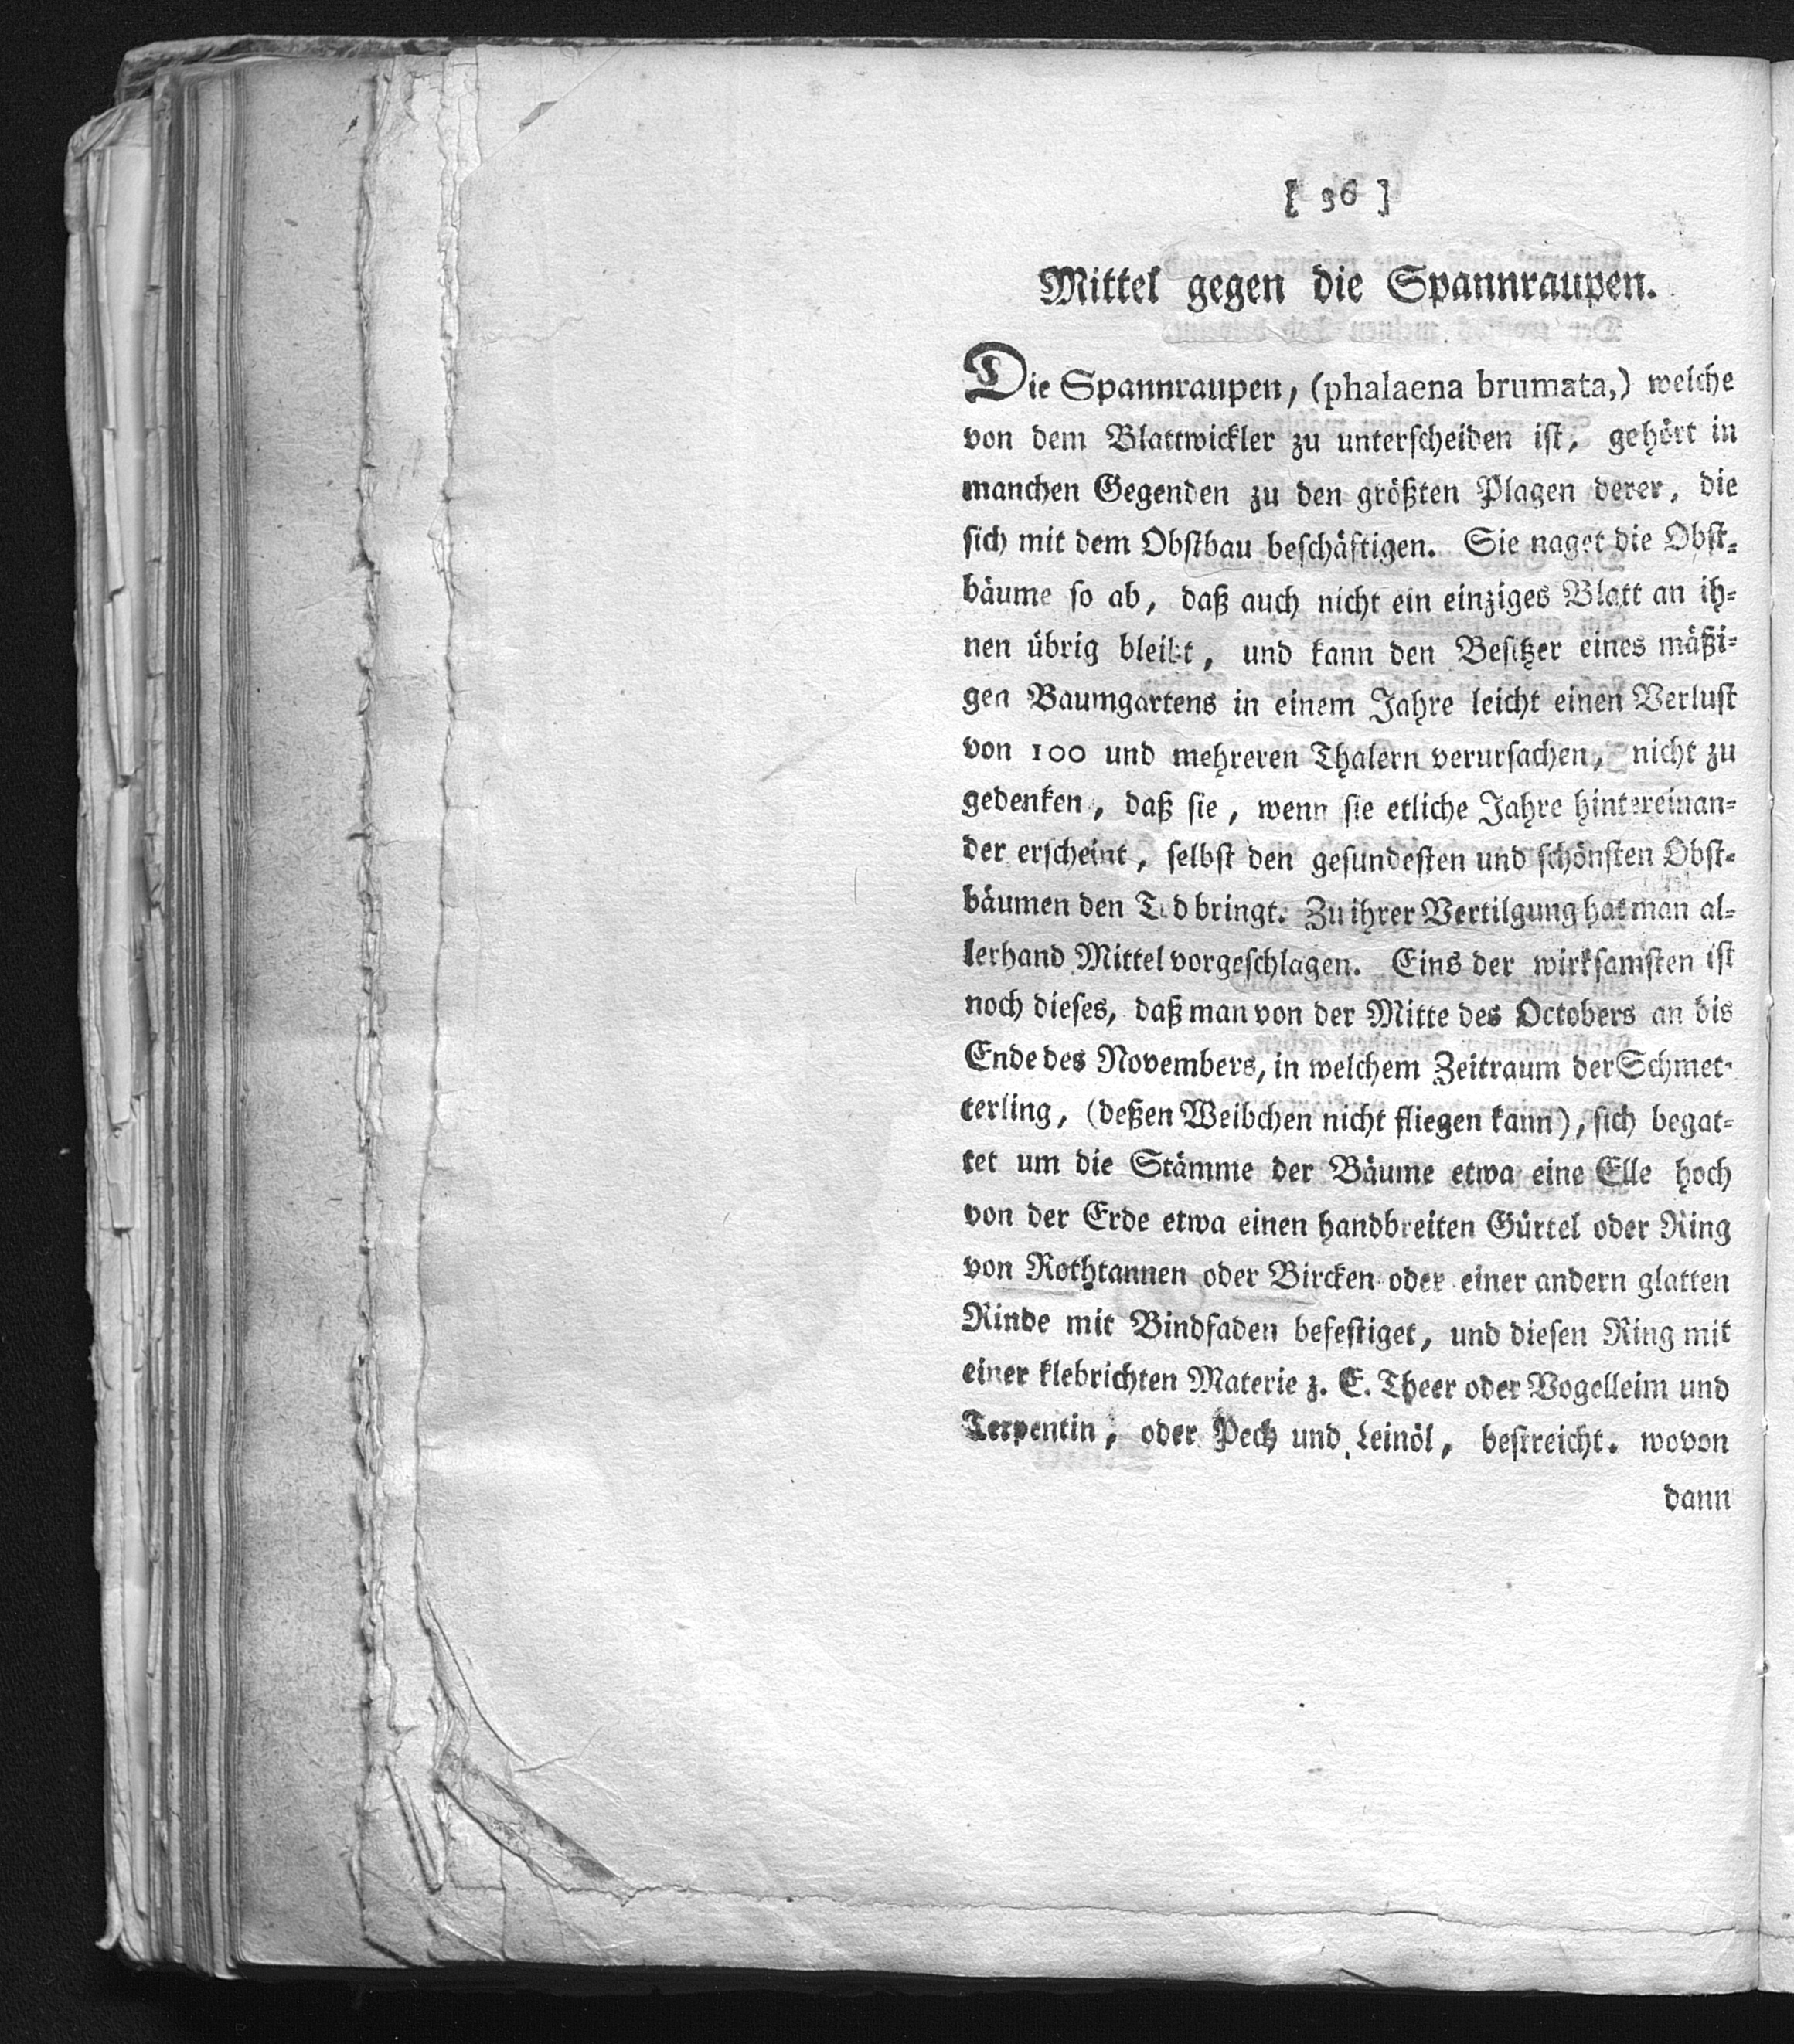 [ 36 ]
Mittel gegen die Spannraupen.
Die Spannraupen, (phalaena brumata,) welche
von dem Blattwickler zu unterscheiden ist, gehört in
manchen Gegenden zu den größten Plagen derer, die
sich mit dem Obstbau beschäftigen. Sie naget die Obst-
bäume so ab, daß auch nicht ein einziges Blatt an ih-
nen übrig bleibt, und kann den Besitzer eines mäßi-
gen Baumgartens in einem Jahre leicht einen Verlust
von 100 und mehreren Thalern verursachen, nicht zu
gedenken, daß sie, wenn sie etliche Jahre hintereinan-
der erscheint, selbst den gesundesten und schönsten Obst-
bäumen den Tod bringt. Zu ihrer Vertilgung hat man al-
lerhand Mittel vorgeschlagen. Eins der wirksamsten ist
noch dieses, daß man von der Mitte des Octobers an bis
Ende des Novembers, in welchem Zeitraum der Schmet-
terling, (deßen Weibchen nicht fliegen kann), sich begat-
tet um die Stämme der Bäume etwa eine Elle hoch
von der Erde etwa einen handbreiten Gürtel oder Ring
von Rothtannen oder Bircken oder einer andern glatten
Rinde mit Bindfaden befestiget, und diesen Ring mit
einer klebrichten Materie z. E. Theer oder Vogelleim und
Terpentin, oder Pech und Leinöl, bestreicht. wovon
dann